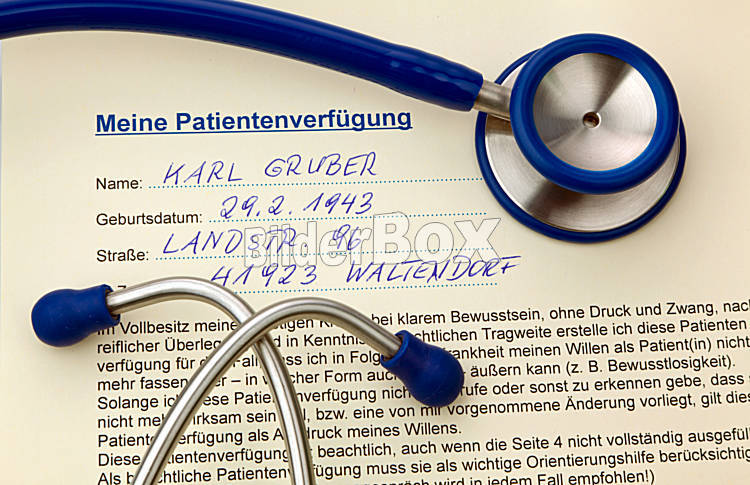 Meine Patientenverfügung
Name: KARL GRUBER
Geburtsdatum: 29.2.1943
Straße: LANDSTR 96
41923 WALTENDORF
BilderBOX
Vollbesitz meiner bei klarem Bewusstsein, ohne Druck und Zwang, nach
reiflicher in Kenntnis rechtlichen Tragweite erstelle ich diese Patienten
verfügung für ich in Folge meinen Willen als Patient(in) nicht
mehr – in Form äußern kann (z. B. Bewusstlosigkeit).
Solange ich diese Patientenverfügung oder sonst zu erkennen gebe, dass
nicht mehr bzw. eine von mir vorgenommene Änderung vorliegt, gilt
als meines Willens.
Diese beachtlich, auch wenn die Seite 4 nicht vollständig
Als Patientenverfügung muss sie als wichtige Orientierungshilfe
wird in jedem Fall empfohlen!)